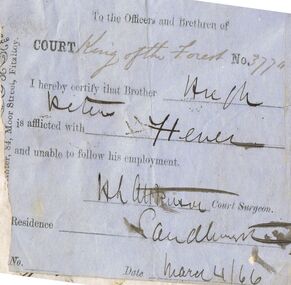 To the Officers and Brethren of
COURT King of the Forest No. 3770
I hereby certify that Brother Hugh
Peter
is afflicted with Fever
and unable to follow his employment.
Court Surgeon.
Residence Sandhurst
No. Date March 4/66
84, Moor Street, Fitzroy.